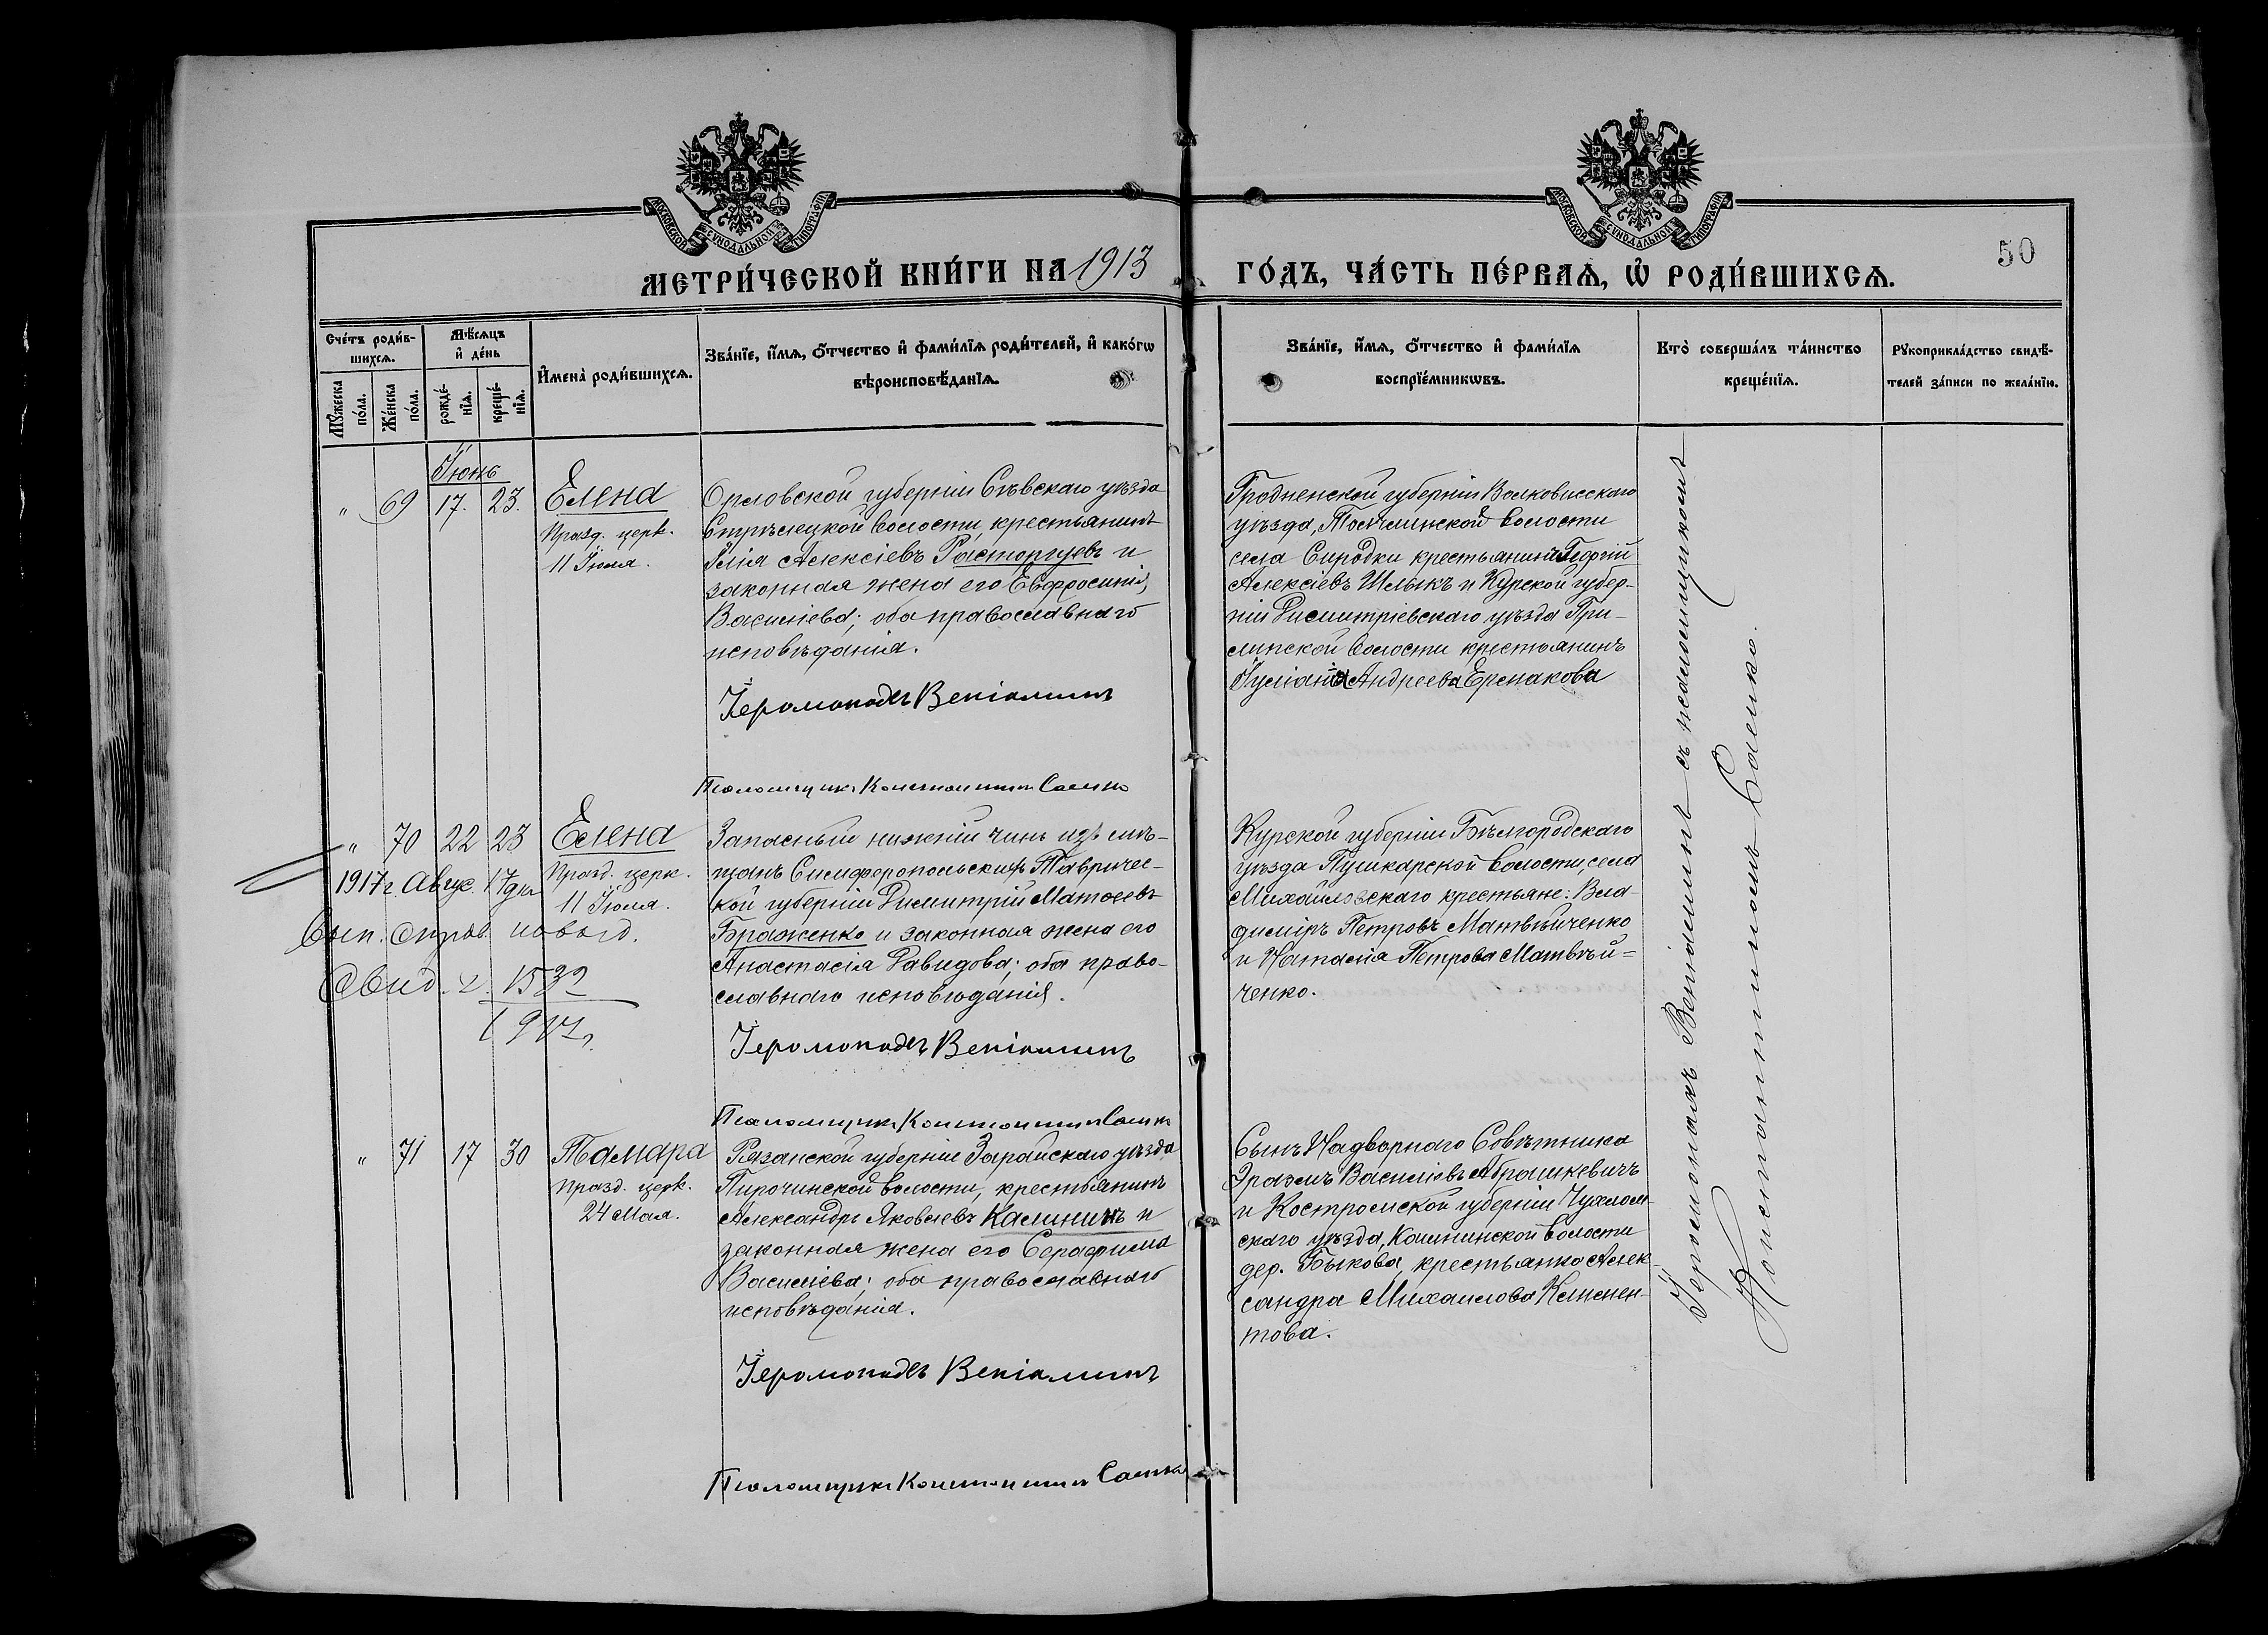 МОСКОВСКОЙ СѴНОДАЛЬНОЙ ТИПОГРАФІИ
МОСКОВСКОЙ СѴНОДАЛЬНОЙ ТИПОГРАФІИ
МЕТРИ́ЧЕСКОЙ КНИ́ГИ НА 1913
ГО́ДЪ, ЧА́СТЬ ПЕ́РВАѦ, Ѽ РОДИ́ВШИХСѦ.
50
Сче́тъ роди́в-
шихсѧ.
Мѣ́сѧцъ
и҆ де́нь
Мꙋ́жеска
по́ла.
Же́нска
по́ла.
рожде́-
нїѧ.
креще́-
нїѧ.
И҆мена̀ роди́вшихсѧ.
Зва́нїе, и҆́мѧ, ѻ҆́тчество и҆ фами́лїѧ роди́телей, и҆ како́гѡ
вѣроисповѣ́данїѧ.
Зва́нїе, и҆́мѧ, ѻ҆́тчество и҆ фами́лїѧ
воспрїе́мникѡвъ.
Кто̀ соверша́лъ та́инство
креще́нїѧ.
Рꙋкоприкла́дство свидѣ́-
телей за́писи по жела́нїю.
Іюнь
" 69 17. 23. Елена
Празд. церк.
11 Іюля.
Орловской губерніи Сѣвскаго уѣзда
Стрѣлецкой волости, крестьянинъ
Илія Алексіевъ Расторгуевъ и
законная жена его Евфросинія
Василіева; оба православнаго
исповѣданія.
Іеромонахъ Веніаминъ
Псаломщикъ Константинъ Саенко
Гродненской губерніи Волковисскаго
уѣзда, волости
села Сиродки крестьянинъ Георгій
Алексіевъ Шлыкъ и Курской губер-
ніи Димитріевскаго уѣзда При-
липской волости крестьянинъ
Іуліанія Андреева Ермакова
" 70 22 23 Елена
Празд. церк.
11 Іюля.
1917 г. Авгус. 17 дня
Вып. справ.
Свид. №
1917
Запасный нижній чинъ изъ мѣ-
щанъ Симферопольскихъ Тавричес-
кой губерніи Димитрій Матѳеевъ
Браженко и законная жена его
Анастасія Давидова; оба право-
славнаго исповѣданія.
Іеромонахъ Веніаминъ
Псаломщикъ Константинъ Саенко
Курской губерніи Бѣлгородскаго
уѣзда Пушкарской волости, села
Михайловскаго крестьяне: Вла-
диміръ Петровъ Матвѣйченко
и Наталія Петрова Матвѣй=
ченко.
" 71 17 30 Тамара
Празд. церк.
24 Мая.
Рязанской губерніи Зарайскаго уѣзда
Пирочинской волости, крестьянинъ
Александръ Яковлевъ Калининъ и
законная жена его Серафима
Василіева; оба православнаго
исповѣданія.
Іеромонахъ Веніаминъ
Псаломщикъ Константинъ Саенко
Сынъ Надворнаго Совѣтника
Эразмъ Василіевъ Абрашкевичъ
и Костромской губерніи Чухлом-
скаго уѣзда, волости
дер. Быкова, крестьянка Алек-
сандра Михаилова Клемен-
това.
Іеромонахъ Веніаминъ съ псаломщикомъ
Константиномъ Саенко.